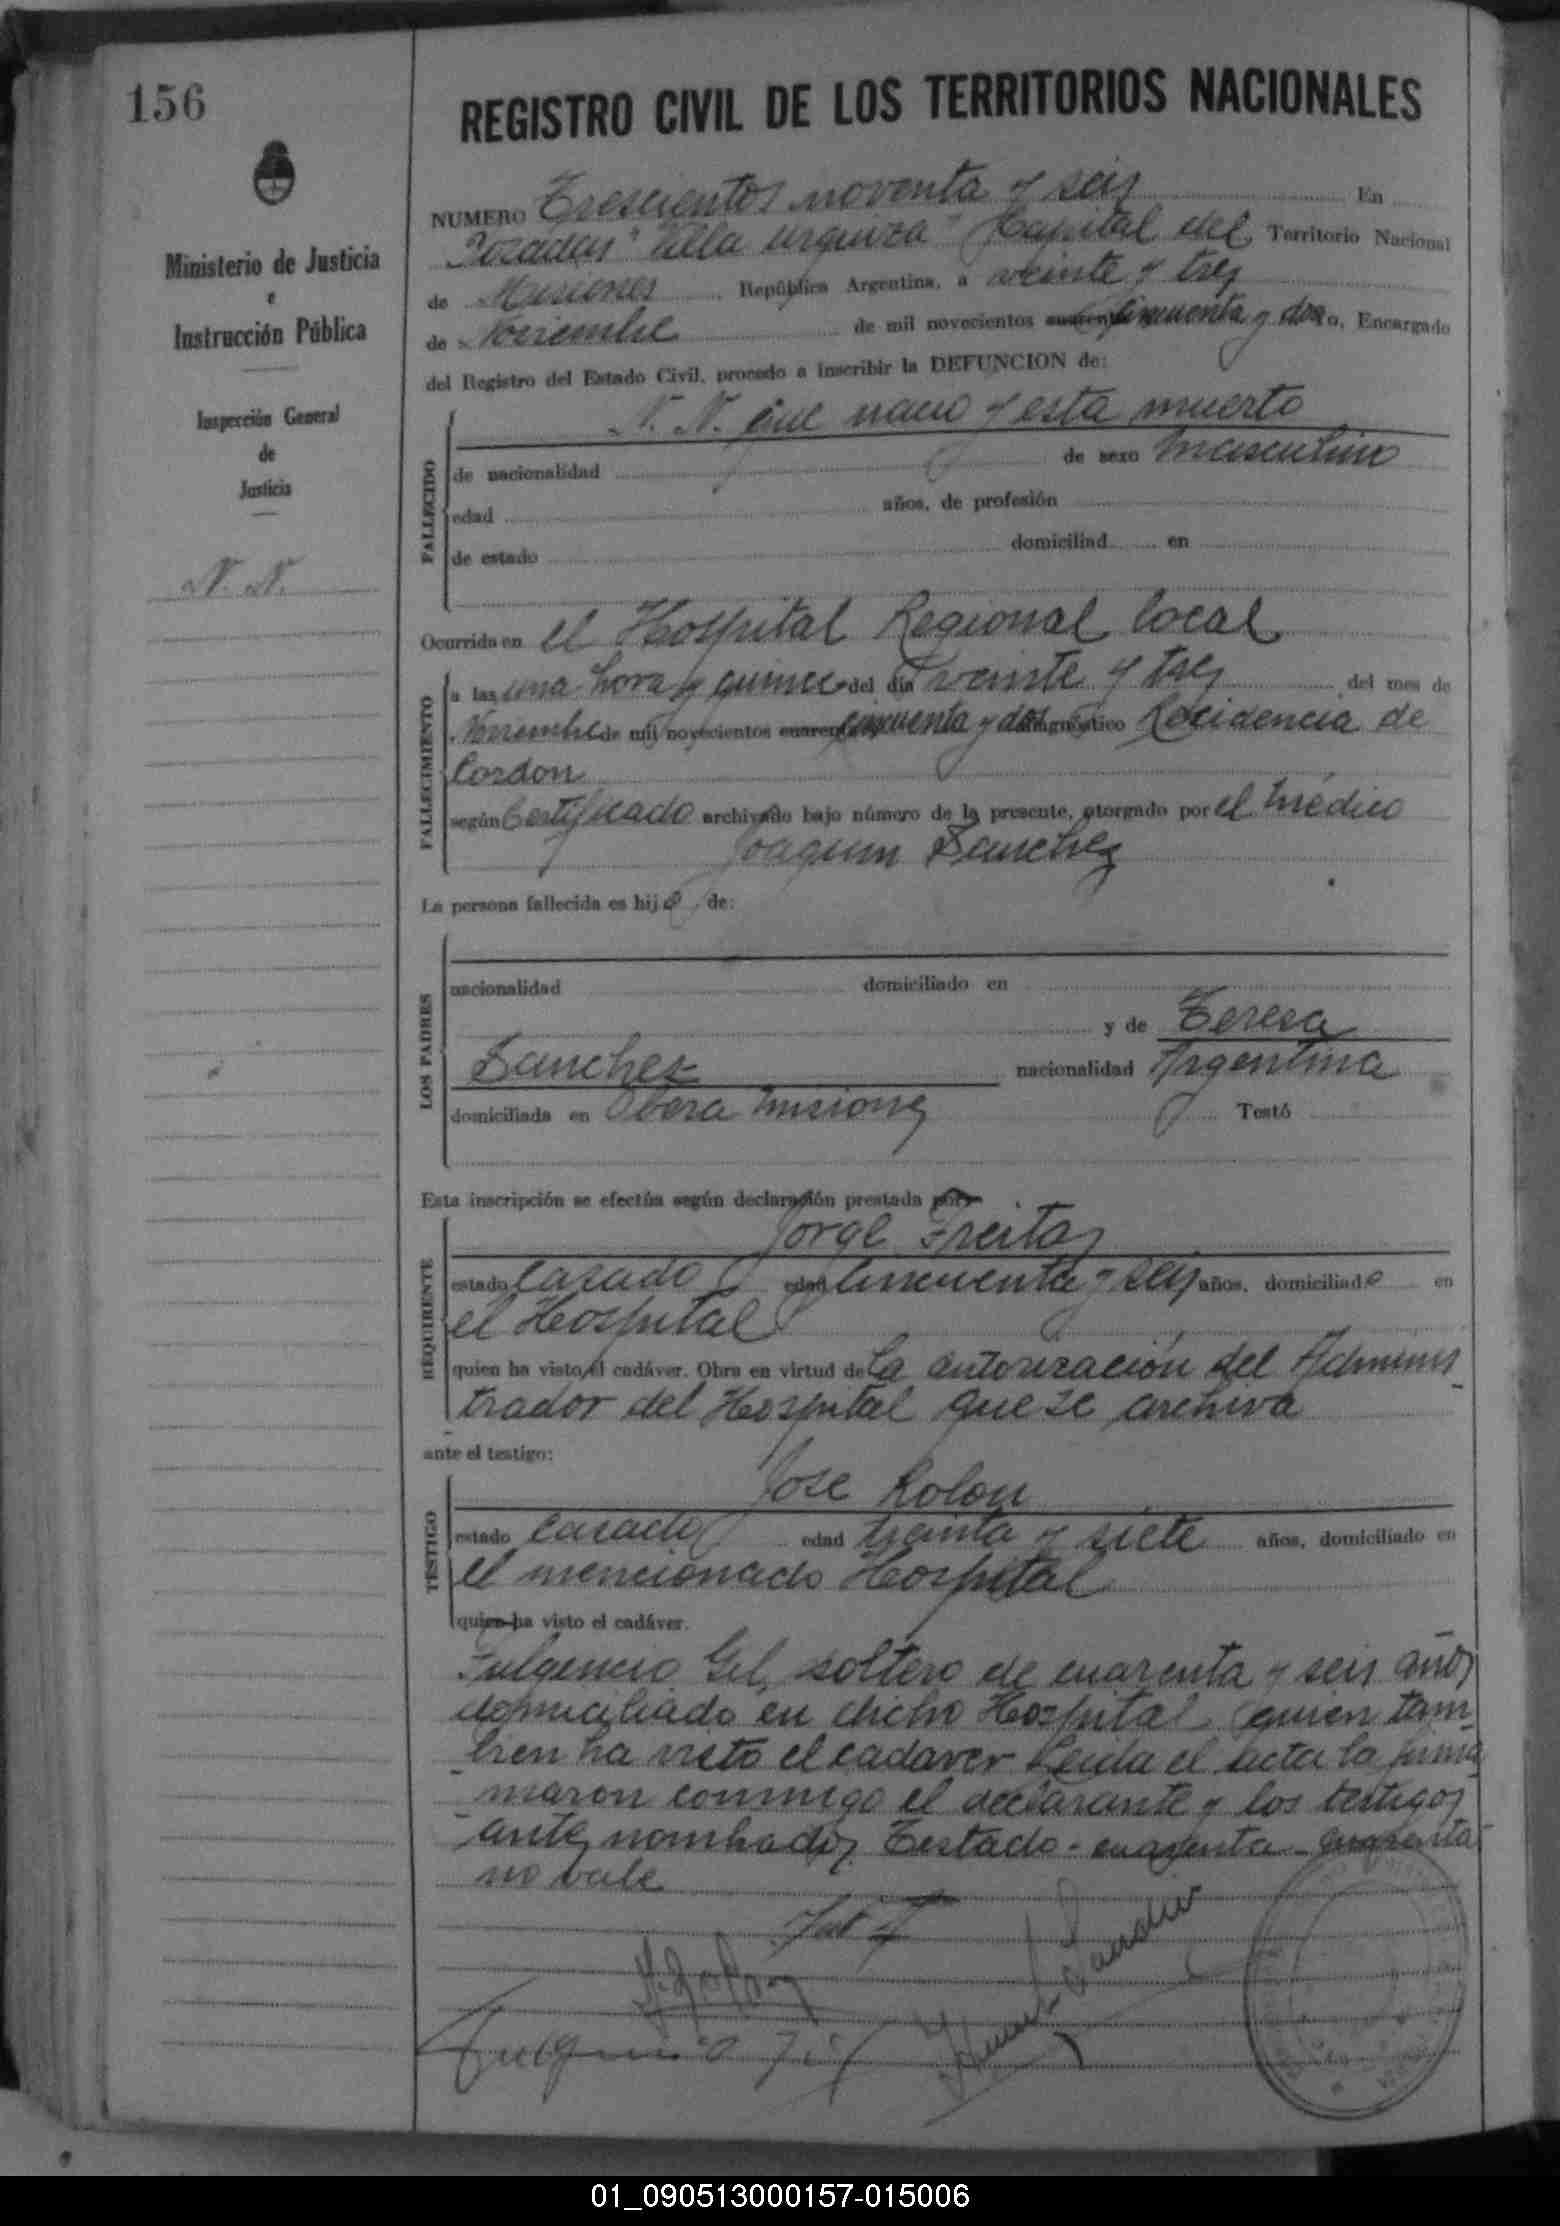 156
Ministerio de Justicia
e
Instrucción Pública
Inspección General
de
Justicia
N. N.
REGISTRO CIVIL DE LOS TERRITORIOS NACIONALES
NUMERO Trescientos noventa y seis En
Posadas "Villa urquiza" Capital del Territorio Nacional
de Misiones República Argentina, a veinte y tres
de Noviembre de mil novecientos cuarenta cincuenta y dos Yo, Encargado
del Registro del Estado Civil, procedo a inscribir la DEFUNCION de:
FALLECIDO
N. N. que nacio y esta muerto
de nacionalidad de sexo masculino
edad años, de profesión
de estado domiciliad en
Ocurrida en el Hospital Regional local
FALLECIMIENTO
a las una hora y quince del día veinte y tres del mes de
Noviembre de mil novecientos cuarenta cincuenta y dos diagnóstico Rocidencia de
Cordon
según Certificado archivado bajo número de la presente, otorgado por el médico
Joaquin Sanchez
La persona fallecida es hijo de:
LOS PADRES
nacionalidad domiciliado en
y de Teresa
Sanchez nacionalidad Argentina
domiciliada en Obera misiones Testó
Esta inscripción se efectúa según declaración prestada por
REQUIRENTE
Jorge Freitas
estado casado edad cincuenta y seis años, domiciliado en
el Hospital
quien ha visto el cadáver. Obra en virtud de la autorización del Adminis_
trador del Hospital que se archiva
ante el testigo:
TESTIGO
Jose Rolon
estado casado edad treinta y siete años, domiciliado en
el mencionado Hospital
quien ha visto el cadáver.
Fulgencio Gil, soltero de cuarenta y seis años
domiciliado en dicho Hospital quien tam_
bien ha visto el cadaver Leida el acta la firma_
maron conmigo el declarante y los testigos
ante nombrados. Testado - cuarenta - cuarenta -
no vale
01_090513000157-015006